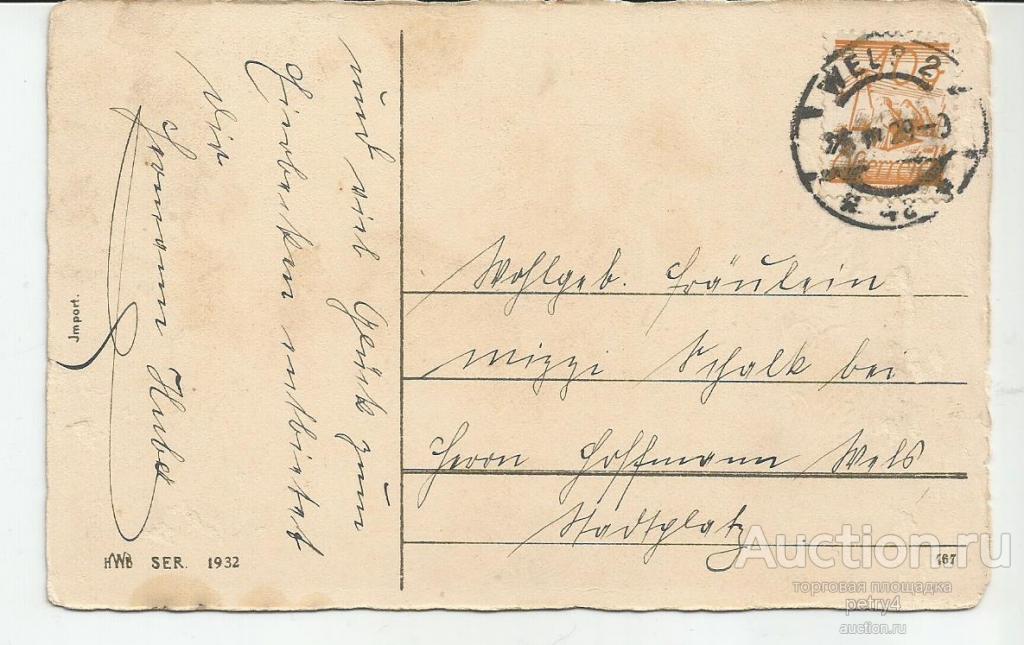 und viel Glück zum
Eierbecken entbietet
Dir
Hermann Huber
Jmport.
HWB SER. 1932
WELS 2
Wohlgeb. Fräulein
Mizzi Schalk bei
Herrn Hoffmann Wels
Stadtplatz
467
Auction.ru
торговая площадка
petry4
auction.ru